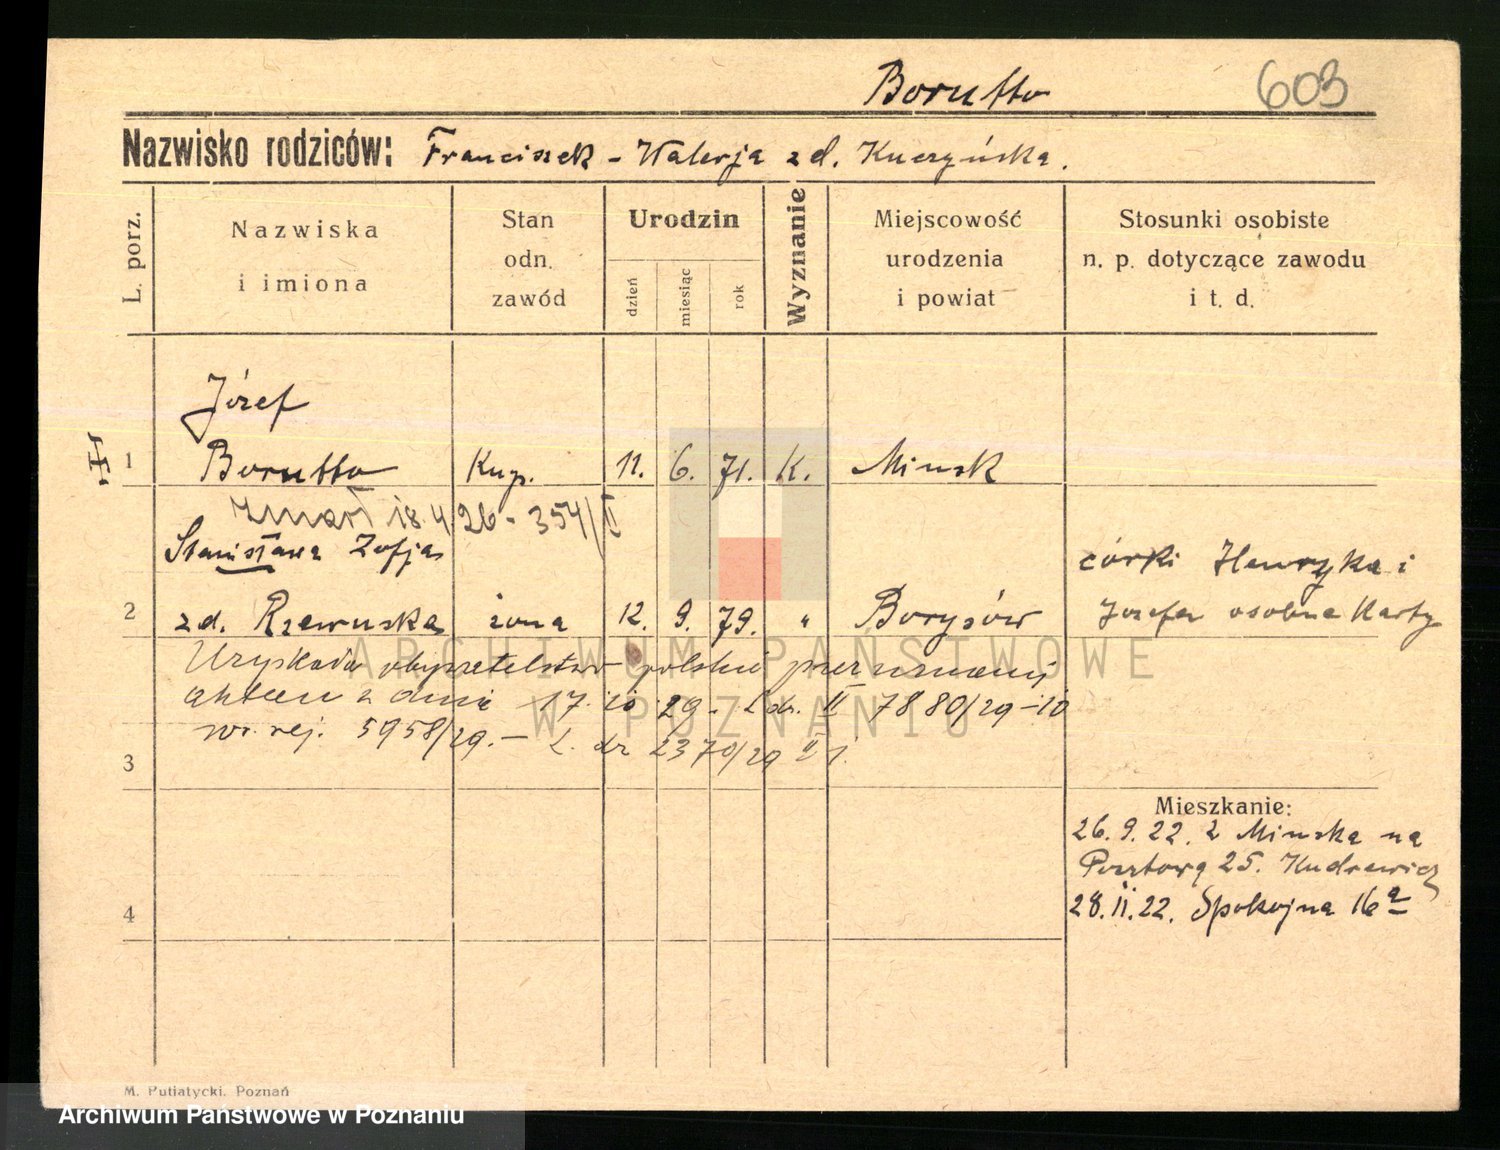 Borutto 603
Nazwisko rodziców: Franciszek - Walerja z d. Kuczyńska.
L. porz.
Nazwiska
i imiona
Stan
odn.
zawód
Urodzin
dzień
miesiąc
rok
Wyznanie
Miejscowość
urodzenia
i powiat
Stosunki osobiste
n. p. dotyczące zawodu
i t. d.
Józef
1 Borutto Kup. 11. 6. 71. K. Minsk
Zmarł 18.4.26 - 354/II
Stanisława Zofja
2 zd. Rzewuska żona 12. 9. 79. " Borysów
córki Henryka i
Józefa osobne Karty
Uzyskała obywatelstwo polskie
aktem z dnia 17. 10. 29. L. dz. II 7880/29-10
nr. rej. 5958/29. - L. dz 2370/29 II
3
Mieszkanie:
26. 9. 22. z Minska na
Pocztową 25. Kudrewicz
28. 11. 22. Spokojna 16a
4
ARCHIWUM PAŃSTWOWE
W POZNANIU
M. Putiatycki. Poznań
Archiwum Państwowe w Poznaniu